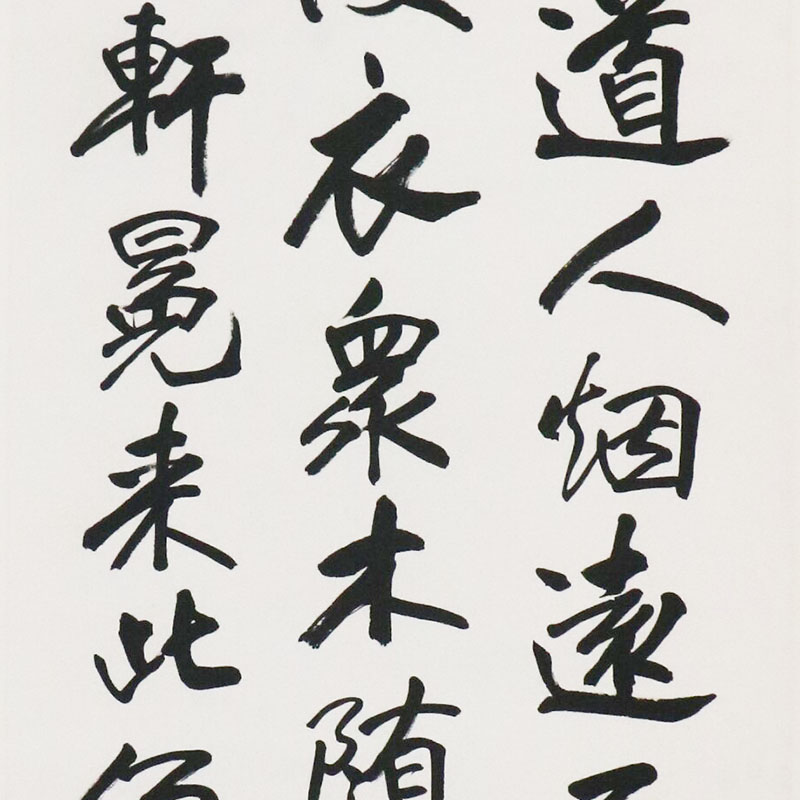 道人烟遠
衣衆木随
軒冕来此